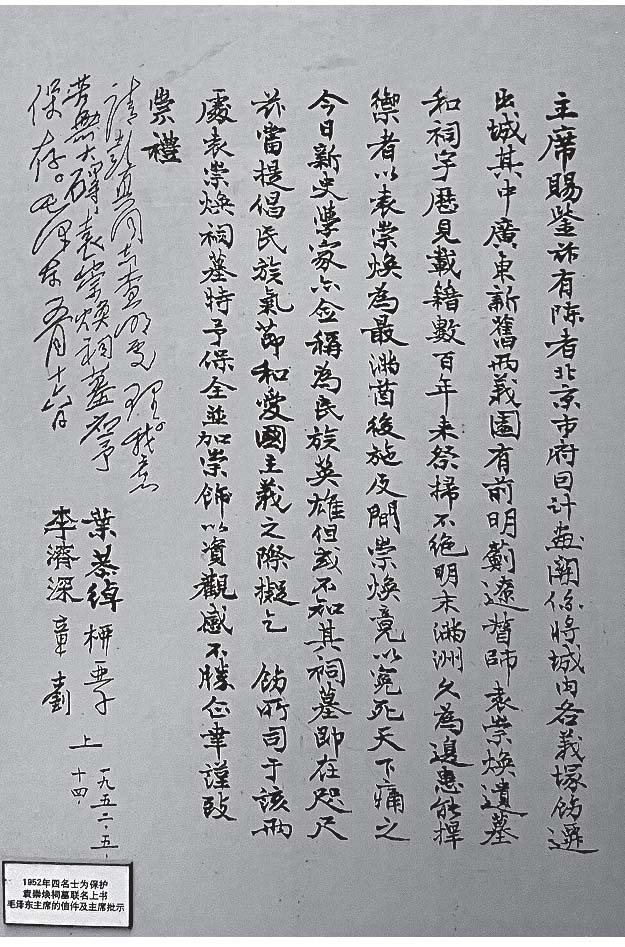 主席賜鑒玆有陳者北京市府因計畫關係將城內各義塚飭遷
出城其中廣東新舊兩義園有前明薊遼督師袁崇煥遺墓
和祠宇歷見載籍數百年來祭掃不絕明末滿洲久為邊患能捍
禦者以袁崇煥為最滿酋後施反間崇煥竟以冤死天下痛之
今日新史學家亦僉稱為民族英雄但或不知其祠墓即在咫尺
玆當提倡民族氣節和愛國主義之際擬乞 飭所司于該兩
處袁崇煥祠墓特予保全並加崇飾以資觀感不勝企幸謹致
崇禮
葉恭綽 柳亞子
李濟深 章士釗 上
一九五二·五·
十四·
請彭真同志查明處理。我意
若無大礙，袁崇煥祠墓應予
保存。毛澤東 五月十六日
1952年四名士为保护
袁崇焕祠墓联名上书
毛泽东主席的信件及主席批示